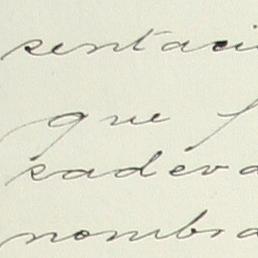 sentaci
que f
sadeva
nombra